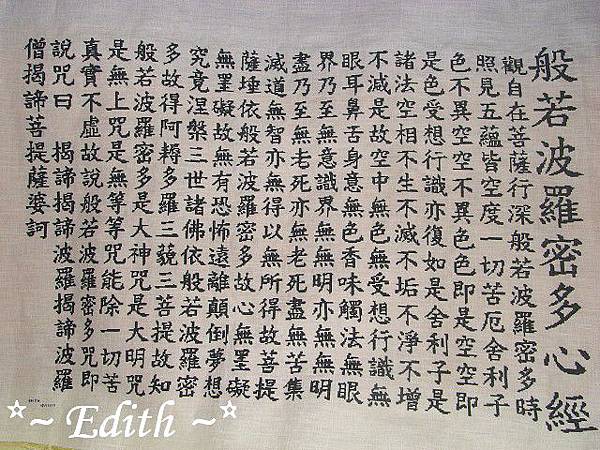 般若波羅密多心經
觀自在菩薩行深般若波羅密多時
照見五蘊皆空度一切苦厄舍利子
色不異空空不異色色即是空空即
是色受想行識亦復如是舍利子是
諸法空相不生不滅不垢不淨不增
不減是故空中無色無受想行識無
眼耳鼻舌身意無色香味觸法無眼
界乃至無意識界無無明亦無無明
盡乃至無老死亦無老死盡無苦集
滅道無智亦無得以無所得故菩提
薩埵依般若波羅密多故心無罣礙
無罣礙故無有恐怖遠離顛倒夢想
究竟涅槃三世諸佛依般若波羅密
多故得阿耨多羅三藐三菩提故知
般若波羅密多是大神咒是大明咒
是無上咒是無等等咒能除一切苦
真實不虛故說般若波羅密多咒即
說咒曰 揭諦揭諦波羅揭諦波羅
僧揭諦菩提薩婆訶
☆~ Edith ~☆